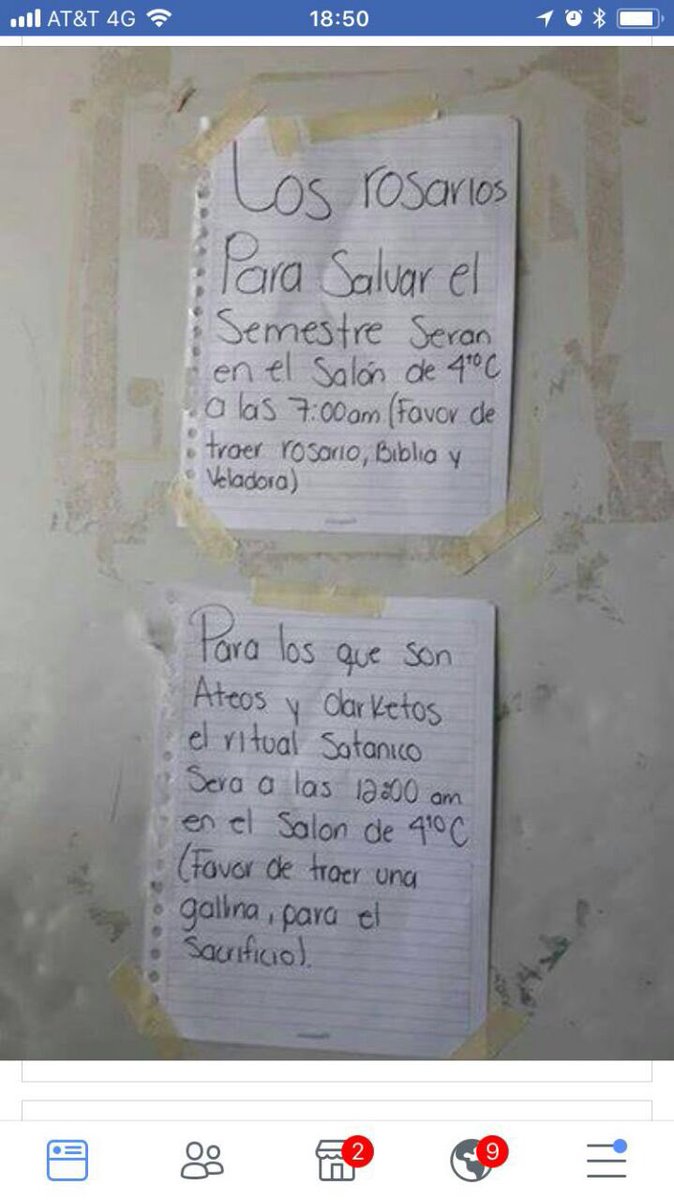 AT&T 4G 18:50
Los rosarios
Para Salvar el
Semestre Seran
en el Salón de 4to C
a las 7:00am (Favor de
traer rosario, Biblia y
Veladora)
Para los que son
Ateos y darketos
el ritual Satanico
Sera a las 12:00 am
en el Salon de 4to C
(Favor de traer una
gallina, para el
Sacrificio).
2 9